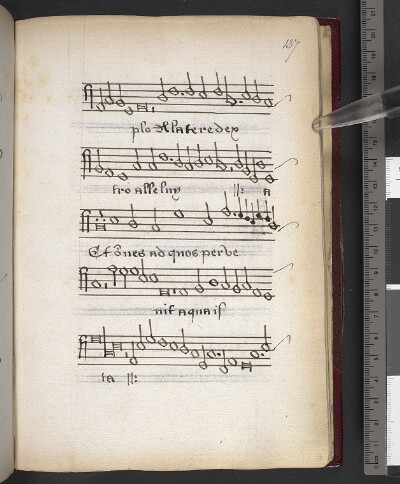 137
plo A latere dex
tro alleluy ||: a
Et oñes ad quos perve
nit aqua iſ
ta ||: